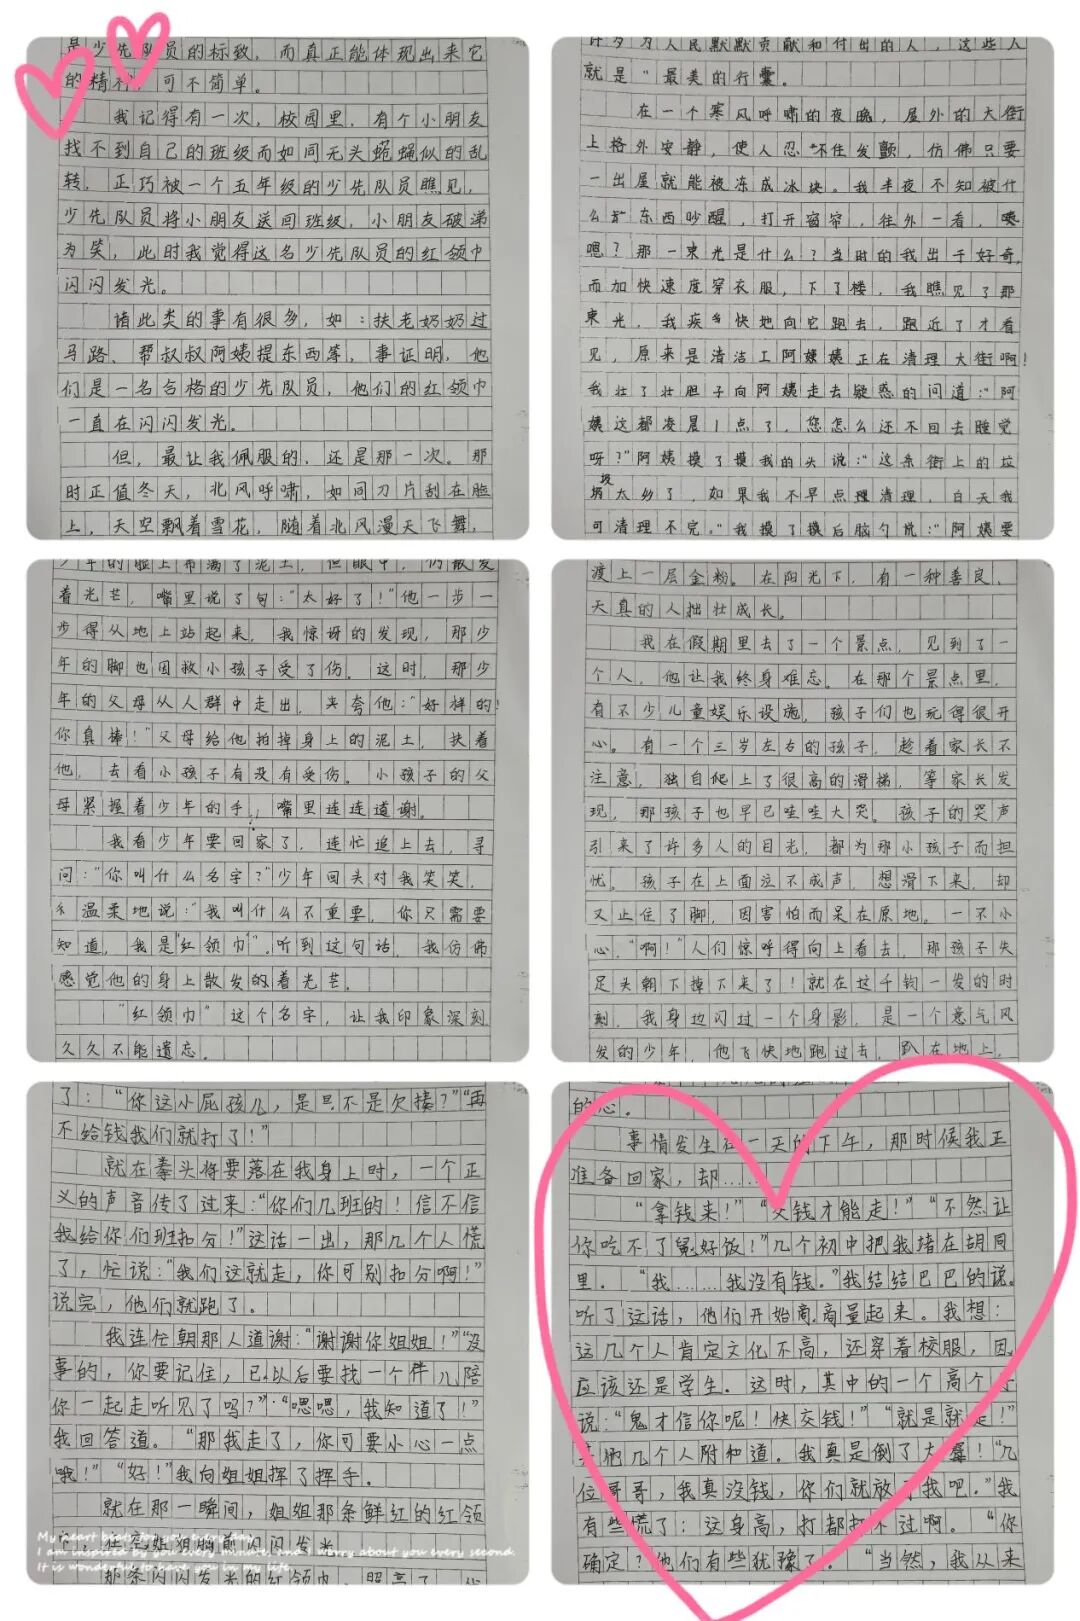 是少先队员的标致，而真正能体现出来它
的精神，可不简单。
我记得有一次，校园里，有个小朋友
找不到自己的班级而如同无头蝇似的乱
转，正巧被一个五年级的少先队员瞧见，
少先队员将小朋友送回班级，小朋友破涕
为笑，此时我觉得这名少先队员的红领巾
闪闪发光。
诸此类的事有很多，如：扶老奶奶过
马路、帮叔叔阿姨提东西等，事证明，他
们是一名合格的少先队员，他们的红领巾
一直在闪闪发光。
但，最让我佩服的，还是那一次。那
时正值冬天，北风呼啸，如同刀片刮在脸
上，天空飘着雪花，随着北风漫天飞舞，
许多为人民默默贡献和付出的人，这些人
就是"最美的行囊。
在一个寒风呼啸的夜晚，屋外的大街
上格外安静，使人忍不住发颤，仿佛只要
一出屋就能被冻成冰块。我半夜不知被什
么东西吵醒，打开窗帘，往外一看，
嗯？那一束光是什么？当时的我出于好奇，
而加快速度穿衣服，下了楼，我瞧见了那
束光，我疾快地向它跑去，跑近了才看
见，原来是清洁工阿姨正在清理大街啊！
我壮了壮胆子向阿姨走去疑惑的问道："阿
姨这都凌晨1点了，您怎么还不回去睡觉
呀？"阿姨摸了摸我的头说："这条街上的垃
圾太多了，如果我不早点清理，白天我
可清理不完。"我摸了摸后脑勺说："阿姨要
少年的脸上布满了泥土，但眼中，仍散发
着光芒，嘴里说了句："太好了！"他一步一
步得从地上站起来，我惊讶的发现，那少
年的脚也因救小孩子受了伤。这时，那少
年的父母从人群中走出，夹夸他："好样的！
你真棒！"父母给他拍掉身上的泥土，扶着
他，去看小孩子有没有受伤。小孩子的父
母紧握着少年的手，嘴里连连道谢。
我看少年要回家了，连忙追上去，寻
问："你叫什么名字？"少年回头对我笑笑，
温柔地说："我叫什么不重要，你只需要
知道，我是"红领巾"。听到这句话，我仿佛
感觉他的身上散发的着光芒。
"红领巾"这个名字，让我印象深刻
久久不能遗忘。
渡上一层金粉。在阳光下，有一种善良、
天真的人拙壮成长。
我在假期里去了一个景点，见到了一
个人，他让我终身难忘。在那个景点里，
有不少儿童娱乐设施，孩子们也玩得很开
心。有一个三岁左右的孩子，趁着家长不
注意，独自爬上了很高的滑梯，等家长发
现，那孩子也早已哇哇大哭。孩子的哭声
引来了许多人的目光，都为那小孩子而担
忧。孩子在上面泣不成声，想滑下来，却
又止住了脚，因害怕而呆在原地。一不小
心，"啊！"人们惊呼得向上看去，那孩子失
足头朝下掉下来了！就在这千钧一发的时
刻，我身边闪过一个身影，是一个意气风
发的少年，他飞快地跑过去，趴在地上，
了："你这小屁孩儿，是不是欠揍？""再
不给钱我们就打了！"
就在拳头将要落在我身上时，一个正
义的声音传了过来："你们几班的！信不信
我给你们班扣分！"这话一出，那几个人慌
了，忙说："我们这就走，你可别扣分啊！"
说完，他们就跑了。
我连忙朝那人道谢："谢谢你姐姐！""没
事的，你要记住，以后要找一个伴儿陪
你一起走听见了吗？""嗯嗯，我知道了！"
我回答道。"那我走了，你可要小心一点
哦！""好！"我向姐姐挥了挥手。
就在那一瞬间，姐姐那条鲜红的红领
巾，在姐姐胸前闪闪发光
那条闪闪发光的红领巾，照亮了
My heart beats for you every day.
I am inspired by you every minute, and I worry about you every second.
It is wonderful to have you in my life.
事情发生在一天的下午，那时候我正
准备回家，却……
"拿钱来！""交钱才能走！""不然让
你吃不了好饭！"几个初中把我堵在胡同
里。"我……我没有钱。"我结结巴巴的说。
听了这话，他们开始商量起来。我想：
这几个人肯定文化不高，还穿着校服，
应该还是学生。这时，其中的一个高个子
说："鬼才信你呢！快交钱！""就是就是！"
其他几个人附和道。我真是倒了大霉！"几
位哥哥，我真没钱，你们就放了我吧。"我
有些慌了：这身高，打都打不过啊。"你
确定？他们有些犹豫了。"当然，我从来